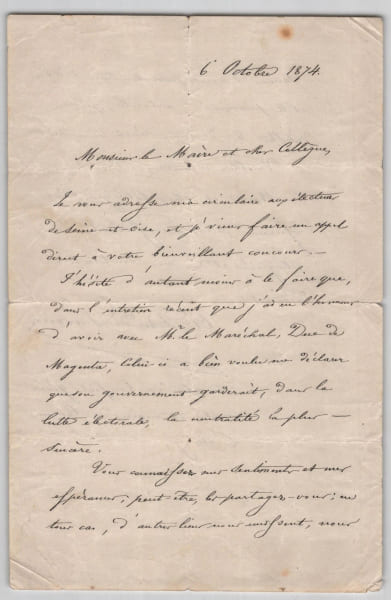 6 Octobre 1874.
Monsieur le Maire et cher Collègue,
Je vous adresse ma circulaire aux électeurs
de Seine-et-Oise, et je viens faire un appel
direct à votre bienveillant concours. —
J'hésite d'autant moins à le faire que,
dans l'entretien récent que j'ai eu l'honneur
d'avoir avec Mr. le Maréchal, Duc de
Magenta, celui ci a bien voulu me déclarer
que son gouvernement garderait, dans la
lutte électorale, la neutralité la plus —
sincère.
Vous connaissez mes sentiments et mes
espérances, peut-être, les partagez-vous; en
tous cas, d'autres liens nous unissent, nous